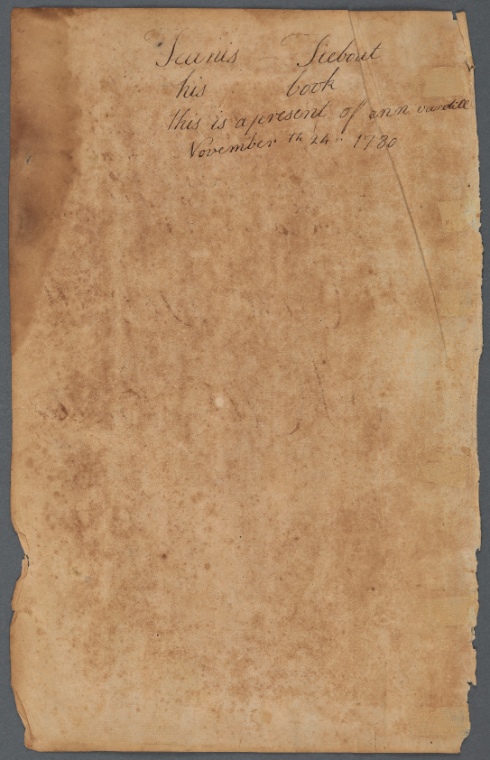 Teunis Tiebout
his book
this is a present of ann vardill
November th 24 1780